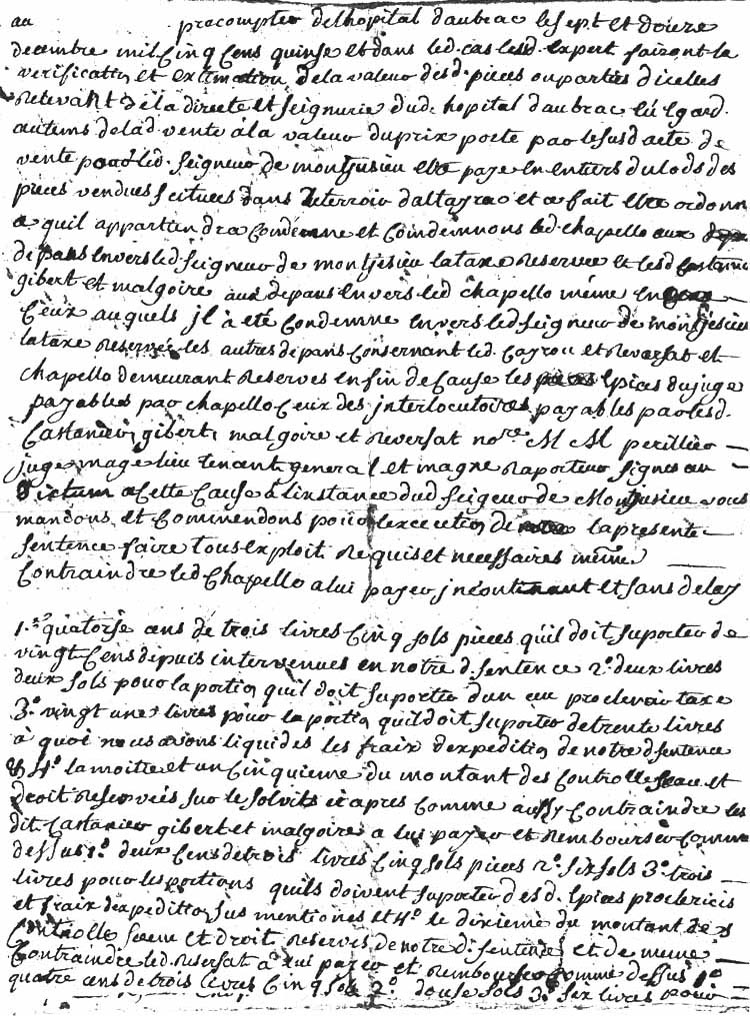 au precompter delhopital daubrac le sept et douze
decembre mil Cinq Cens quinse et dans led. cas lesd. expert fairont la
veriffication et extimation de la valeur desd. pieces ou parties dicelles
Relevant de la directe et seigneurie dud. hopital daubrac eu Egard
au tems de lad. vente à la valeur du prix porté par le susd acte de
vente pour led. seigneur de montjusieu etre payé en entier du lods des
pieces vendues scituées dans le terroir daltayrac et a fait etre ordonné
a quil appartiendra Condemne et Condemnons led. chapelle aux
depans envers led. seigneur de montjesieu la taxe reservée et lesd Castanier
gibert et malgoire aux depans envers led chapelle même en
Ceux auquels jl à été Condemné envers led seigneur de montjesieu
la taxe reservée les autres depans Consernant led. Cayrou et Reversat et
chapelle demeurant Reservés en fin de Cause les Epices du juge
payables par chapelle Ceux des jnterlocutoires payables par lesd.
Castanier, gibert, malgoire et Reversat nore. M M perillier
juge mage lieutenant general et magne Raporteur signés au
Dictum a Cette Cause à l'instance dud seigneur de Montjusieu vous
mandons et Commendons pour lexecution de la presente
sentence faire tous exploit Requis et necessaires même
Contraindre led Chapelle a lui payer jncontinant et sans delay
1.º quatorse cens de trois livres Cinq sols pieces qu'il doit suporter de
vingt Cens depuis intervenues en notre d. sentence 2.º deux livres
deux sols pour la portion quil doit suporter dun ecu proclerois taxé
3.º vingt une livres pour la portion quil doit suporter de trente livres
à quoi nous avons liquidés les fraix dexpedition de notre d sentence
& 4.º la moitié et un Cinquieme du montant des Controlle sceau et
droit Reservés sur le solvit ci apres Comme aussy Contraindre les
dit. Castanier gibert et malgoire a lui payer et Rembourser Comme
dessus 1.º deux Cens de trois livres Cinq sols pieces 2.º six sols 3.º trois
livres pour les portions quils doivent suporter desd. Epices proclericis
et fraix dexpedition sus mentionés et 4.º le dixieme du montant des
Controlle sceau et droit Reservés de notre d. sentence et de meme
Contraindre led. Reversat à lui payer et Rembourser Comme dessus 1º
quatre cens de trois livres Cinq sols 2.º douse sols 3.º six livres pour